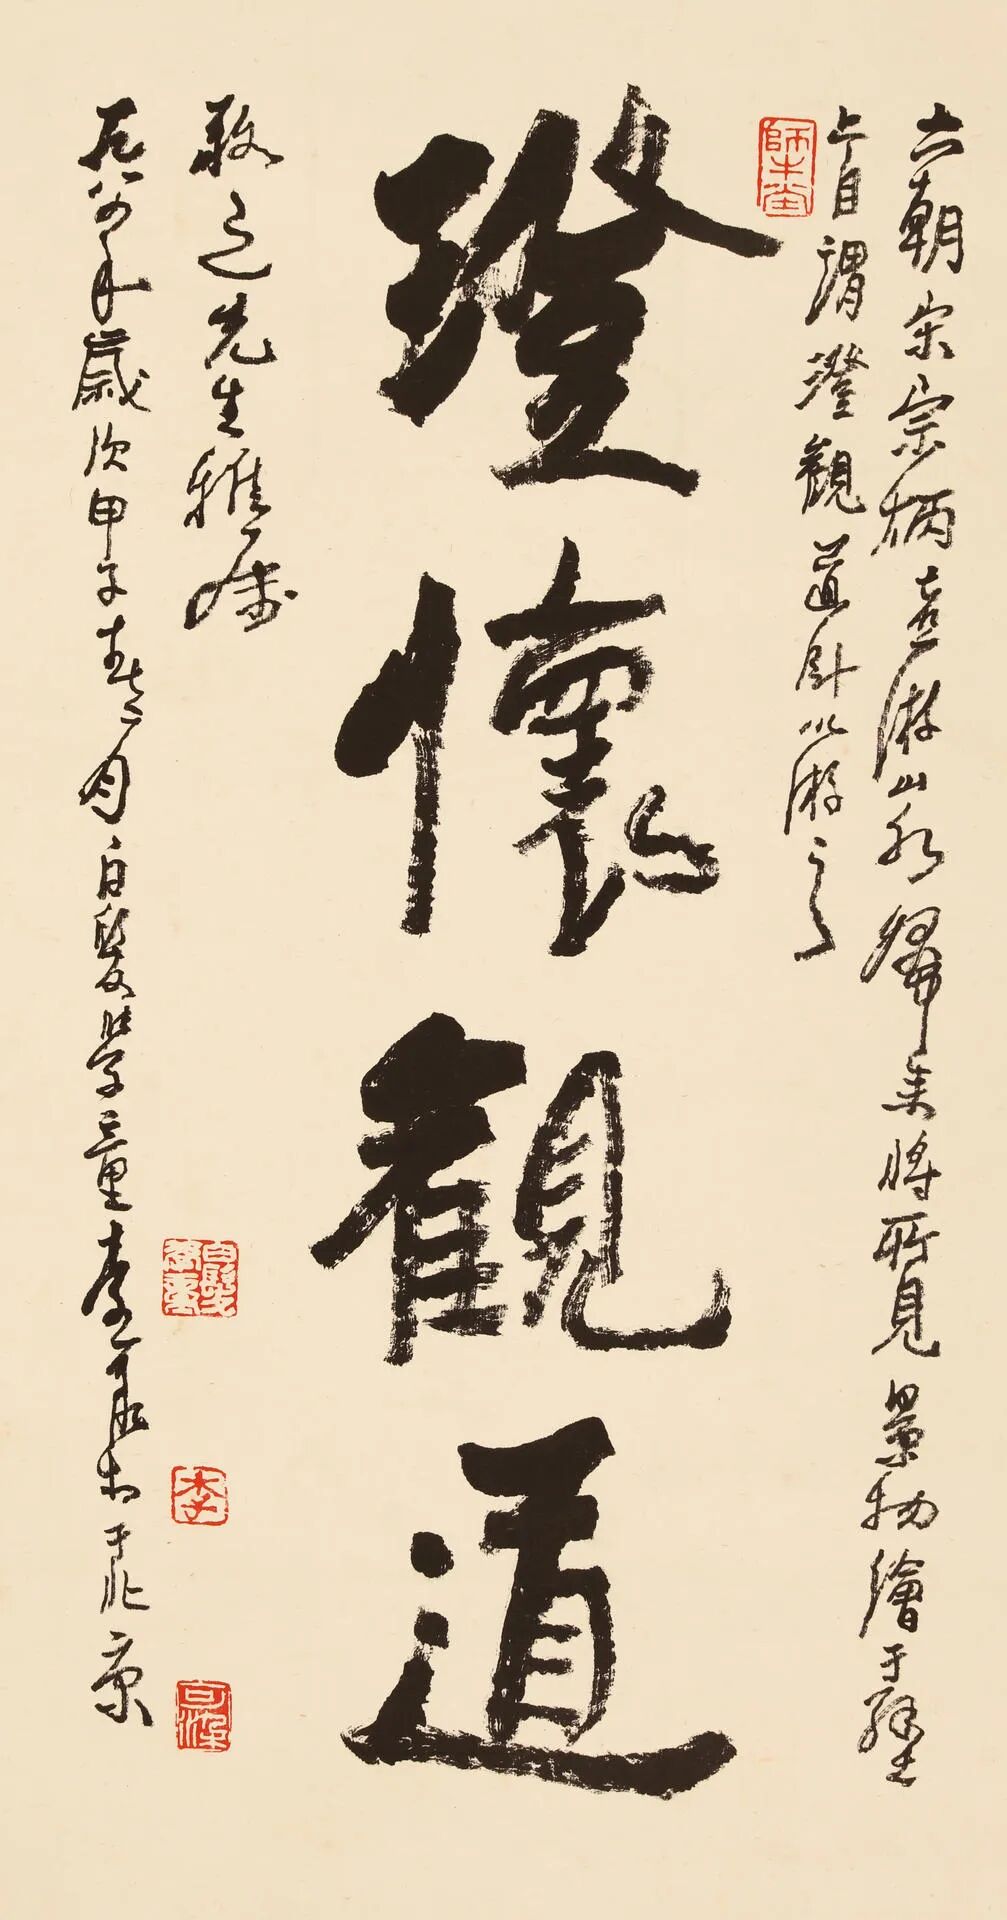 六朝宋宗柄喜游山水歸来將所見景物繪于壁
上自謂澄觀道卧以游之
師牛堂
澄懷觀道
之先生雅属
一九八四年歲次甲子春月白髮學童李可染書于北京
白髮學童
李
可染